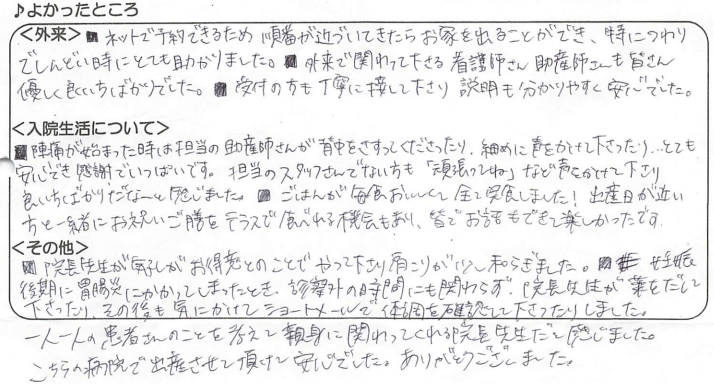 ♪よかったところ
<外来> ■ ネットで予約できるため 順番が近づいてきたら お家を出ることができ、特につわり
でしんどい時にとても助かりました。■ 外来で関わって下さる 看護師さん 助産師さんも皆さん
優しく良い方ばかりでした。■ 受付の方も丁寧に接して下さり 説明も分かりやすく安心でした。
<入院生活について>
■ 陣痛が始まった時は担当の助産師さんが背中をさすってくださったり、細めに声をかけて下さったり…とても
安心でき感謝でいっぱいです。担当のスタッフさんでない方も「頑張ってね」など声をかけて下さり
良い方ばかりだな～と感じました。■ ごはんが毎食おいしくて全て完食しました! 出産日が近い
方と一緒にお祝いご膳をテラスで食べれる機会もあり、皆でお話もできて楽しかったです。
<その他>
■ 院長先生が気功がお得意とのことでやって下さり肩こりが少し和らぎました。■ 妊娠
後期に胃腸炎にかかってしまったとき、診察外の時間にも関わらず、院長先生が薬をだして
下さったり、その後も気にかけてショートメールで体調を確認して下さったりしました。
一人一人の患者さんのことを考えて親身に関わってくれる院長先生だと感じました。
こちらの病院で出産させて頂けて安心でした。ありがとうございました。